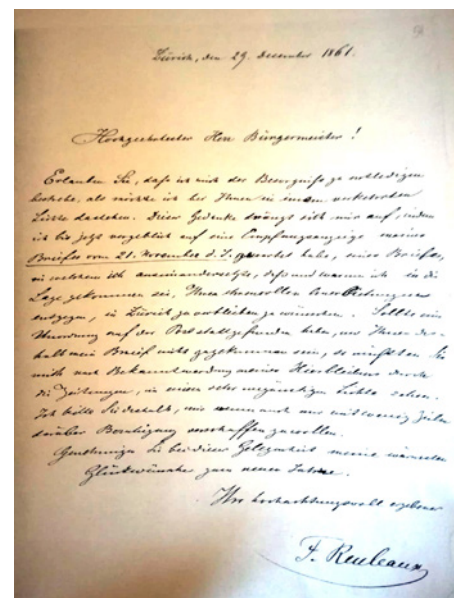 Zürich, den 29. December 1861.
Hochgeehrtester Herr Bürgermeister!
Erlauben Sie, daß ich mich der Besorgniß zu entledigen
suche, als möchte ich bei Ihnen in einem verkehrten
Lichte dastehen. Dieser Gedanke drängt sich mir auf, indem
ich bis jetzt vergeblich auf eine Empfangsanzeige meines
Briefes vom 21. November d. J. gewartet habe, eines Briefes,
in welchem ich auseinandersetzte, daß und warum ich in die
Lage gekommen sei, Ihren ehrenvollen Anerbietungen
entgegen, in Zürich zu verbleiben zu wünschen. Sollte eine
Unordnung auf der Post stattgefunden haben, und Ihnen des-
halb mein Brief nicht zugekommen sein, so müßten Sie
mich nach Bekanntwerdung meines Hierbleibens durch
die Zeitungen, in einem sehr ungünstigen Lichte sehen.
Ich bitte Sie deshalb, mir wenn auch nur mit wenig Zeilen
darüber Beruhigung verschaffen zu wollen.
Genehmigen Sie bei dieser Gelegenheit meine wärmsten
Glückwünsche zum neuen Jahre.
Ihr hochachtungsvoll ergebener
F. Reuleaux